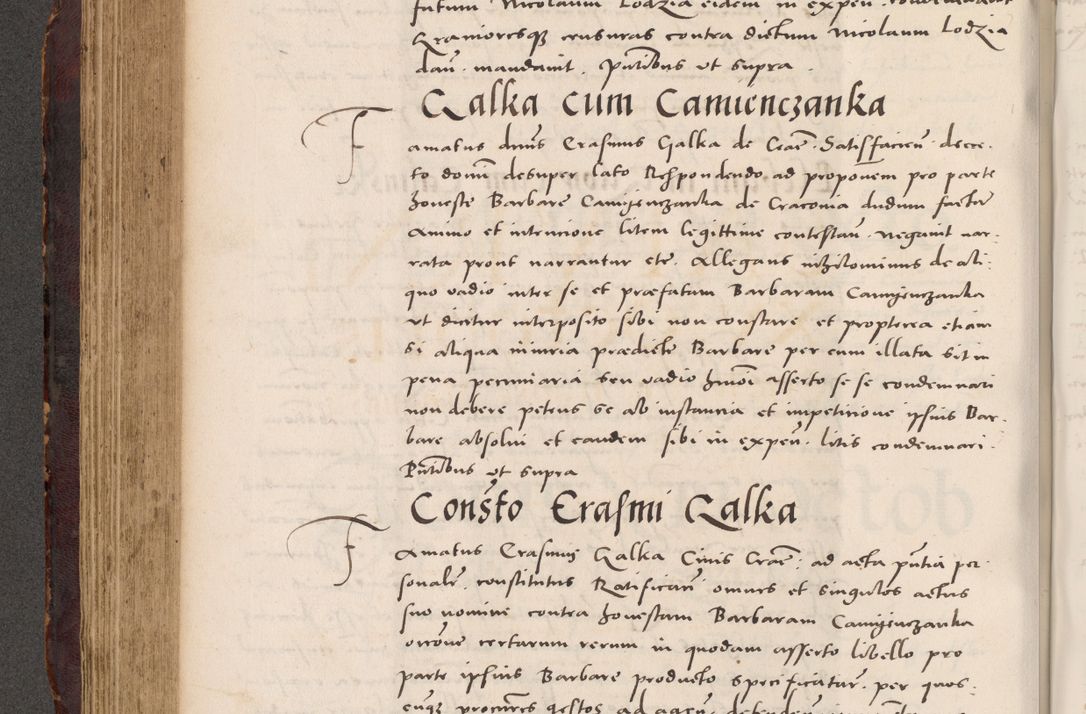 futum Nicolaum Lodzia eidem in expeñ condemnavit
Gravioresqꝫ censuras contra dictum Nicolaum Lodzia
dañ mandavit. Pñtibus ut supra.
Galka cum Camienczanka
Famatus dñus Erasmus Galka de Crac̃. Satisfacieñ decre-
to domĩ desuper lato Respondendo ad proponem pro parte
honeste Barbare Camyenczanka de Cracovia dudum factã
Animo et intencione litem legittime contestañ. Negavit nar-
rata prout narrantur etc. Allegans nihilominus de ali-
quo vadio inter se et praefatam Barbaram Camyenczanka
ut dicitur interposito sibi non constare et propterea etiam
si aliqua iniuria praedicte Barbare per eum illata sit in
pena pecuniaria seu vadio hmõi asserto se se condemnari
non debere petens se ab instantia et impeticione ipsius Bar-
bare absolvi et eandem sibi in expeñ. litis condemnari.
Pñtibus ut supra
Consto Erasmi Galka
Famatus Erasmus Galka Civis Crac̃. ad acta pñtia per-
sonalr̃ constitutus Ratificañ omnes et singulos actus
suo nomine contra honestam Barbaram Camyenczanka
occõne certarum rerum in quodam asserto libello pro
parte ipsius Barbare producto specificatar̃. per quos-
cunqꝫ procũres gestos ad ageñ defendeñ